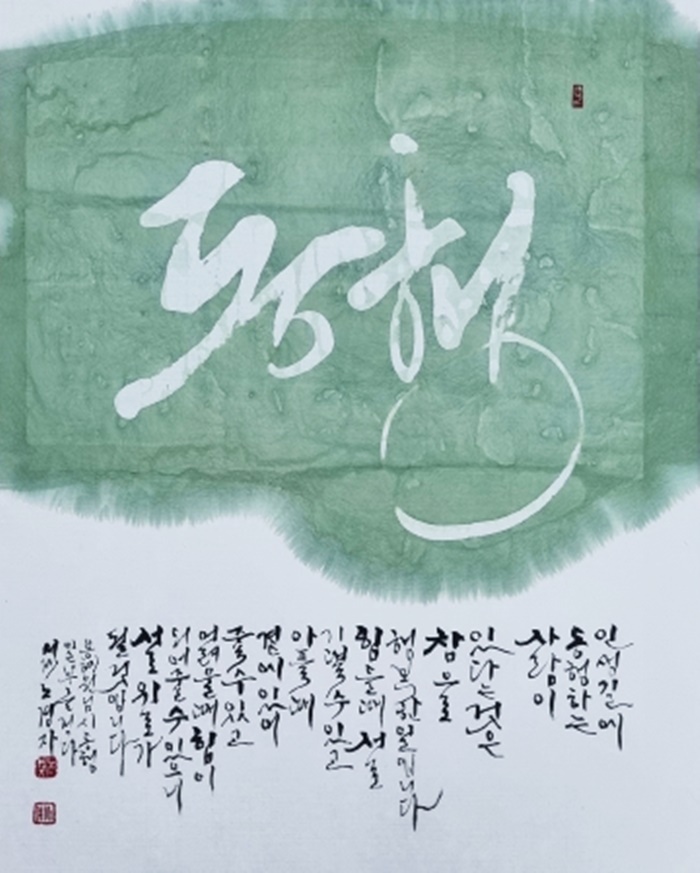 동행
인생길에
동행하는
사람이
있다는것은
참으로
행복한일입니다
힘들때 서로
기댈 수 있고
아플때
곁에 있어
줄 수 있고
어려울때 힘이
되어줄 수 있으니
서로 위로가
될것입니다
시 동행
일부를 쓰다